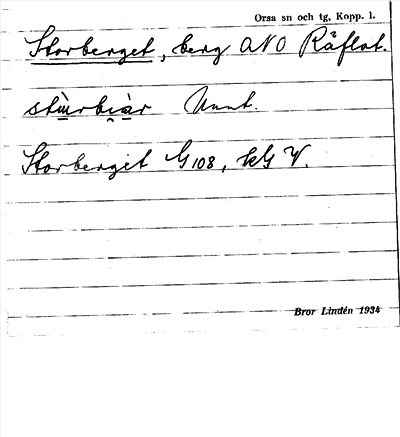 Orsa sn och tg, Kopp. l.
Storberget, berg ONO Räflot.
stùrbiàr Unnt.
Storberget G 108, kG V.
Bror Lindén 1934